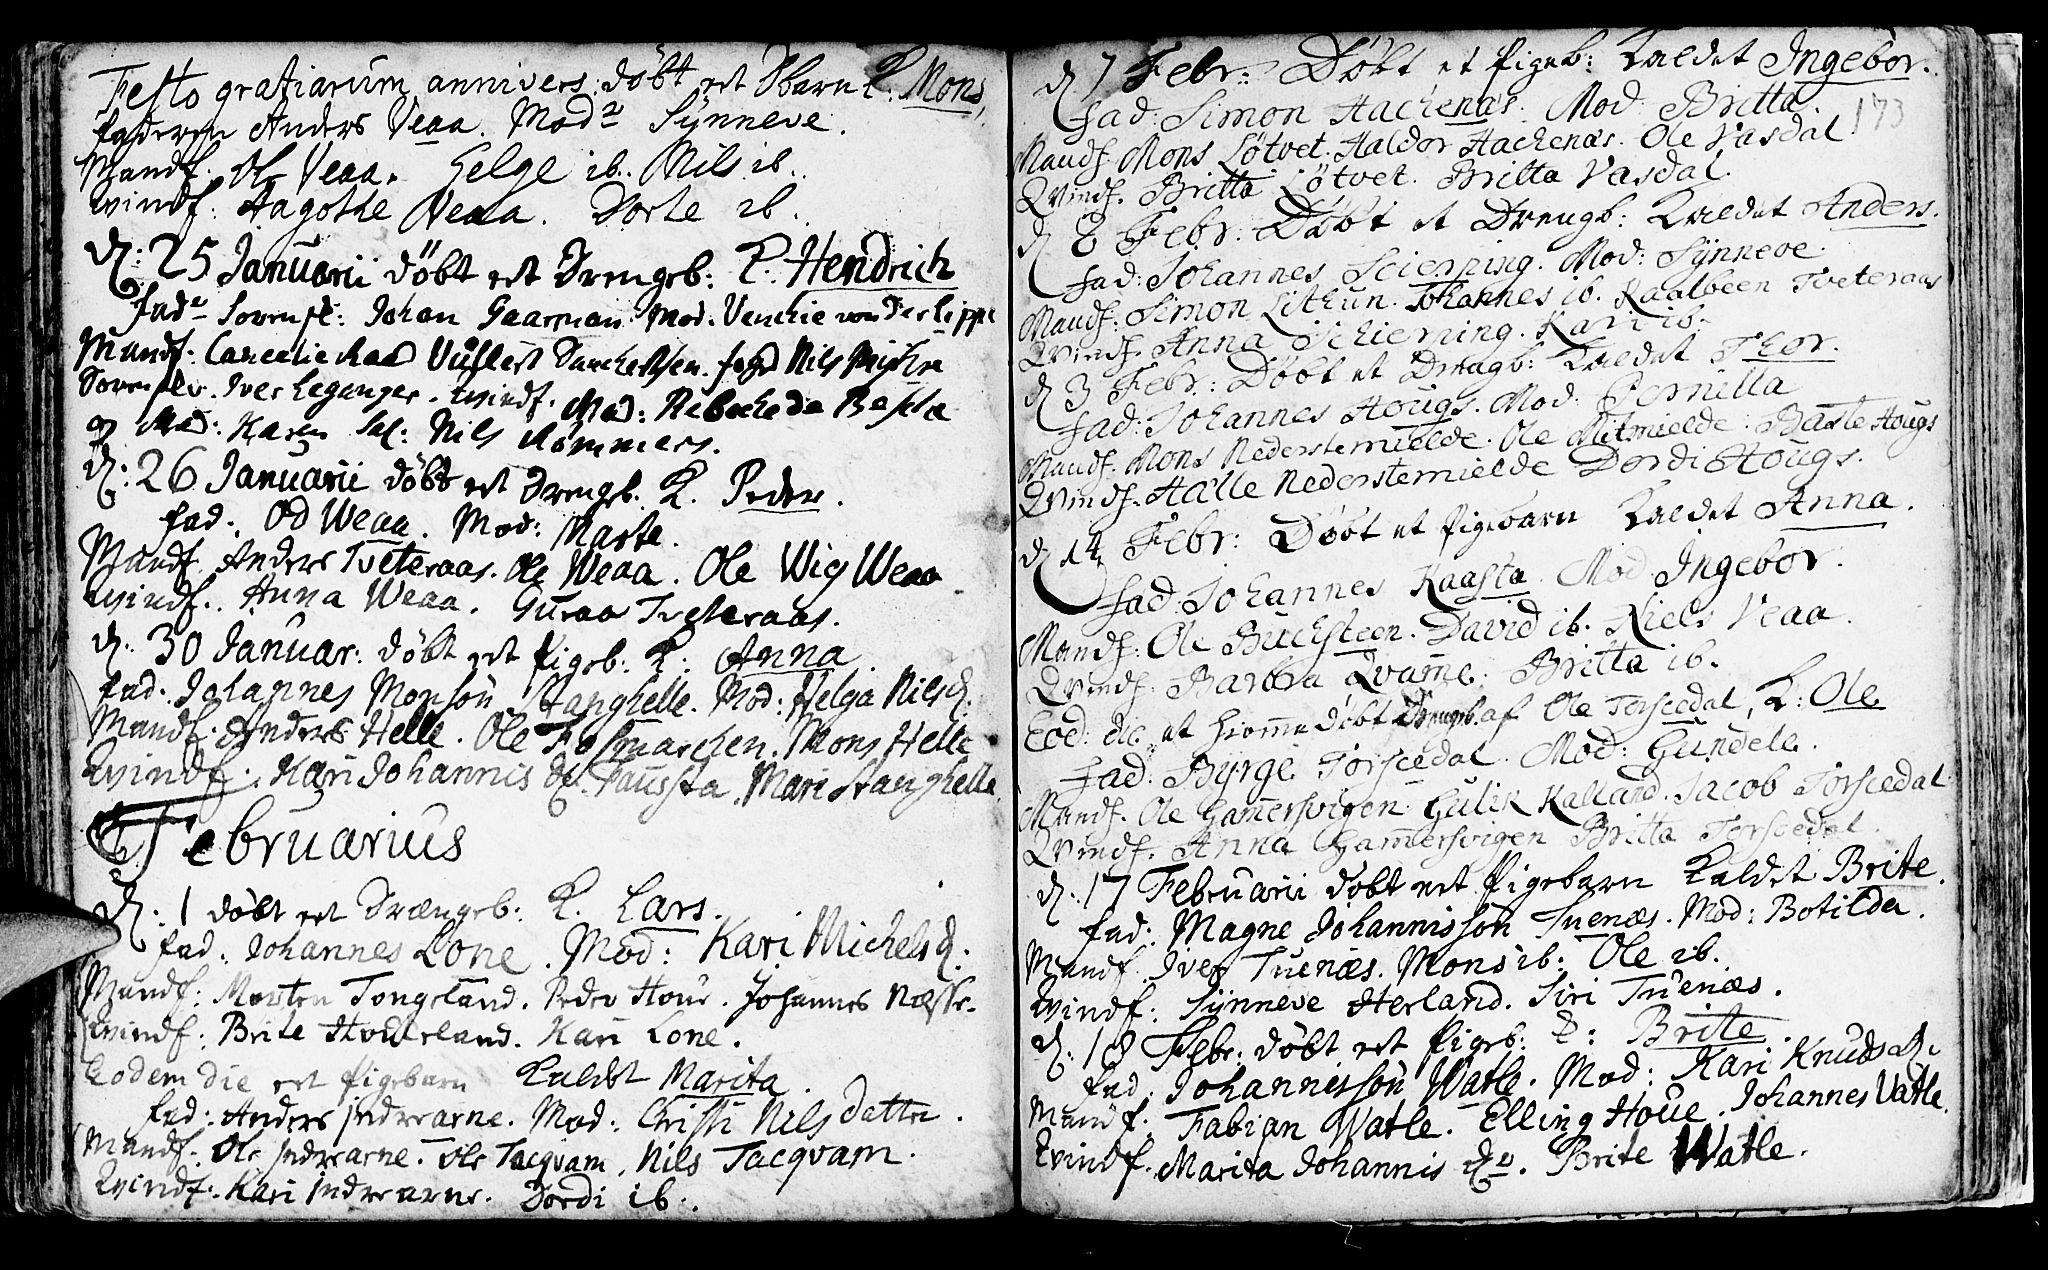 Festo gratiarum annivers: døbt eet Dbarn K. Mons,
faderen Anders Veaa. Modr Synneve.
Mandf. Ole Veaa. Helge ib. Nils ib.
Qvindf. Aagothe Veaa. Dorte ib.
D: 25 Januarii døbt eet Drengeb: K. Hendrich
fadr Sorenskr: Johan Gaarman. Mod. Venche von Der Lippe
Mandf. Cancelie Raad Vilhelt Danchertsen. Nils
Sorenskr. Iver Leganger. qvindf. Mad: Rebecke de Besche
og Mad: Karen Sal: Nils Rommers.
D: 26 Januarii døbt eet Drengb. K. Peder.
fad: Od Weaa. Mod: Marte.
Mandf. Anders Tveteraas. Ole Weaa. Ole Wig Weaa
qvindf. Anna Weaa. Guraa Tveteraas.
D: 30 Januar: døbt eet Pigeb: K: Anna.
fad. Johannes Monsøn Stanghelle. Mod: Helga Nilsd.
Mandf. Anders Helle. Ole Fosmarchen. Mons Helle
Qvindf. Kari Johannis D. Faussta. Mari Stanghelle
Februarius
D: 1 døbt eet Drængeb: K. Lars.
fad. Johannes Lone. Mod: Kari Michelsd.
Mandf: Morten Tongeland. Peder Houe. Johannes Næsse.
Qvindf: Brite Houkeland. Kari Lone.
Eodem die eet Pigebarn Kaldet Marita.
fad: Anders Indrearne. Mod: Christi Nils Datter.
Mandf. Ole Indrearne. Ole Tacqvam. Nils Tacqvam.
Qvindf. Kari Indrearne. Dordi ib.
D 7 Febr: Døbt et Pigeb: Kaldet Ingebor.
173
fad: Simon Hachenæs. Mod: Britta.
Mandf. Mons Løtvet. Haldor Hachenæs. Ole Vasdal
Qvindf. Britta Løtvet. Britta Vasdal.
D 8 Febr. Døbt et Drengb: Kaldet Anders.
fad: Johannes Scierping. Mod: Synneve.
Mandf: Simon Lithun. Johannes ib. Kaalbeen Tveteraas
Qvindf. Anna Schierping. Kari ib.
D 3 Febr: Døbt et Drengb: Kaldet Thor.
fad: Johannes Hougs. Mod: Pernilla
Mandf. Mons Nederstemielde. Ole Mitmielde. Baste Hougs
Qvindf. Halle Nederstemielde Dordi Hougs.
D 14 Febr: Døbt et Pigebarn Kaldet Anna.
fad: Johannes Raasta. Mod Ingebor.
Mandf: Ole Buchsteen. David ib. Niels Veaa.
Qvindf. Barbra Qvame. Britta ib.
Eod: die et hiemme døbt Drengb. af Ole Torscedal, K: Ole
fad: Byrge Torscedal. Mod: Gundele.
Mandf. Ole Gamersvigen. Gulik Kalland. Jacob Torscedal
Qvindf. Anna Gamersvigen Britta Torscedal.
D: 17 Februarii døbt eet Pigebarn Kaldet Brite.
fad: Magne Johannissøn Tuenæs. Mod: Botilda.
Mandf. Iver Tuenæs. Mons ib: Ole ib.
Qvindf: Synneve Herland. Siri Tuenæs.
D: 18 Febr. døbt eet Pigeb: K: Brite.
fad: Johannissøn Watle. Mod: Kari Knudsd.
Mandf. Fabian Watle. Elling Houe. Johannes Vatle.
Qvindf. Marita Johannis Dr. Brite Watle.